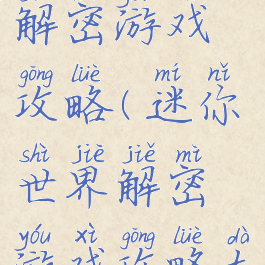 解密游戏
gōng lüè mí nǐ
攻略(迷你
shì jiè jiě mì
世界解密
yóu xì gōng lüè dà